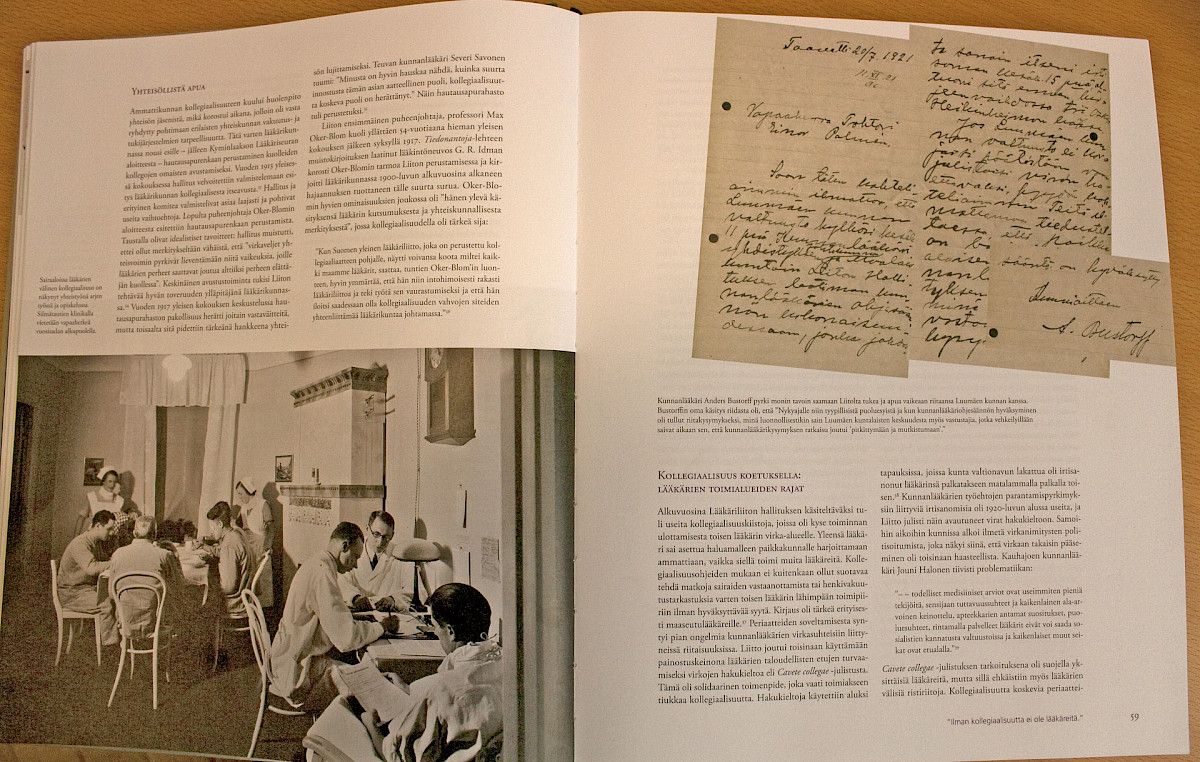 YHTEISÖLLISTÄ APUA
Ammattikunnan kollegiaalisuuteen kuului huolenpito
yhteisön jäsenistä, mikä korostui aikana, jolloin oli vasta
ryhdytty pohtimaan erilaisten yhteiskunnan vakuutus- ja
tukijärjestelmien tarpeellisuutta. Tätä varten lääkärikun-
nassa nousi esille – jälleen Kyminlaakson Lääkäriseuran
aloitteesta – hautausapurenkaan perustaminen kuolleiden
kollegojen omaisten avustamiseksi. Vuoden 1915 yleises-
sä kokouksessa hallitus velvoitettiin valmistelemaan esi-
tys lääkärikunnan kollegiaalisesta itseavusta. Hallitus ja
erityinen komitea valmistelivat asiaa laajasti ja pohtivat
useita vaihtoehtoja. Lopulta puheenjohtaja Oker-Blomin
aloitteesta esitettiin hautausapurenkaan perustamista.
Taustalla olivat idealistiset tavoitteet: hallitus muistutti,
ettei ollut merkityksehtään vähäistä, että "virkaveljet yh-
teisvoimin pyrkivät lieventämään niitä vaikeuksia, joille
lääkärien perheet saattavat joutua alttiiksi perheen elättä-
jän kuollessa". Keskinäinen avustustoiminta tukisi Liiton
tehtävää hyvän toveruuden ylläpitäjänä lääkärikunnas-
sa. Vuoden 1917 yleisen kokouksen keskustelussa hau-
tausapurahaston pakollisuus herätti joitain vastaväitteitä,
mutta toisaalta sitä pidettiin tärkeänä hankkeena yhtei-
Sairaaloissa lääkärien
välinen kollegiaalisuus on
näkynyt yhteistyönä arjen
työssä ja opiskelussa.
Silmätautien klinikalla
vietetään vapaahetkeä
vuosisadan alkupuolella.
sön lujittamiseksi. Teuvan kunnanlääkäri Severi Savonen
toumi: "Minusta on hyvin hauskaa nähdä, kuinka suurta
innostusta tämän asian aatteellinen puoli, kollegiaalisuut-
ta koskeva puoli on herättänyt." Näin hautausapurahasto
tuli perustetuksi.
Liiton ensimmäinen puheenjohtaja, professori Max
Oker-Blom kuoli yllättäen 54-vuotiaana hieman yleisen
kokouksen jälkeen syksyllä 1917. Tiedonantoja-lehteen
muistokirjoituksen laatinut lääkintöneuvos G. R. Idman
korosti Oker-Blomin tarmoa Liiton perustamisessa ja kir-
joitti lääkärikunnassa 1900-luvun alkuvuosina alkaneen
hajaannuksen tuottaneen tälle suurta surua. Oker-Blo-
min hyvien ominaisuuksien joukossa oli "hänen ylevä kä-
sityksensä lääkärin kutsumuksesta ja yhteiskunnallisesta
merkityksestä", jossa kollegiaalisuudella oli tärkeä sija:
"Kun Suomen yleinen lääkäriliitto, joka on perustettu kol-
legiaaliaatteen pohjalle, näytti voivansa koota miltei kaik-
ki maamme lääkärit, saattaa, tuntien Oker-Blom'in luon-
teen, hyvin ymmärtää, että hän niin intohimoisesti rakasti
lääkäriliittoa ja teki työtä sen vaurastumiseksi ja että hän
iloitsi saadessaan olla kollegiaalisuuden vahvojen siteiden
yhteenliittämää lääkärikuntaa johtamassa."
Taavetti 20/7 1921.
Vapaaherra Tohtori
Einar Palmén
S. Bustorff
Kunnanlääkäri Anders Bustorff pyrki monin tavoin saamaan Liitolta tukea ja apua vaikeaan riitaansa Luumäen kunnan kanssa.
Bustorffin oma käsitys riidasta oli, että "Nykyajalle niin tyypillisistä puoluesyistä ja kun kunnanlääkäriohjesäännön hyväksyminen
oli tullut riitakysymykseksi, minä luonnollisestikin sain Luumäen kuntalaisten keskuudesta myös vastustajia, jotka vehkeilyillään
saivat aikaan sen, että kunnanlääkärikysymyksen ratkaisu joutui 'pitkittymään ja mutkistumaan'."
KOLLEGIAALISUUS KOETUKSELLA:
LÄÄKÄRIEN TOIMIALUEIDEN RAJAT
Alkuvuosina Lääkäriliiton hallituksen käsiteltäväksi tu-
li useita kollegiaalisuuskiistoja, joissa oli kyse toiminnan
ulottamisesta toisen lääkärin virka-alueelle. Yleensä lääkä-
ri sai asettua haluamalleen paikkakunnalle harjoittamaan
ammattiaan, vaikka siellä toimi muita lääkäreitä. Kolle-
giaalisuusohjeiden mukaan ei kuitenkaan ollut suotavaa
tehdä matkoja sairaiden vastaanottamista tai henkivakuu-
tustarkastuksia varten toisen lääkärin lähimpään toimipii-
riin ilman hyväksyttävää syytä. Kirjaus oli tärkeä erityises-
ti maaseutulääkäreille. Periaatteiden soveltamisesta syn-
tyi pian ongelmia kunnanlääkärien virkasuhteisiin liitty-
neissä riitaisuuksissa. Liitto joutui toisinaan käyttämään
painostuskeinona lääkärien taloudellisten etujen turvaa-
miseksi virkojen hakukieltoa eli Cavete collegae -julistusta.
Tämä oli solidaarinen toimenpide, joka vaati toimiakseen
tiukkaa kollegiaalisuutta. Hakukieltoja käytettiin aluksi
tapauksissa, joissa kunta valtionavun lakattua oli irtisa-
nonut lääkärinsä palkatakseen matalammalla palkalla toi-
sen. Kunnanlääkärien työehtojen parantamispyrkimyk-
siin liittyviä irtisanomisia oli 1920-luvun alussa useita, ja
Liitto julisti näin avautuneet virat hakukieltoon. Samoi-
hin aikoihin kunnissa alkoi ilmetä virkanimitysten poli-
tisoitumista, joka näkyi siinä, että virkaan takaisin pääse-
minen oli toisinaan haasteellista. Kauhajoen kunnanlää-
käri Jouni Halonen tiivisti problematiikan:
"– – todelliset medisiiniset arviot ovat useimmiten pieniä
tekijöitä, sensijaan tuttavuussuhteet ja kaikenlainen ala-ar-
voinen keinottelu, apteekkarien antamat suositukset, puo-
luesuhteet, rintamalla palvelleet lääkärit eivät voi saada so-
sialistien kannatusta valtuustoissa ja kaikenlaiset muut sei-
kat ovat etualalla."
Cavete collegae -julistuksen tarkoituksena oli suojella yk-
sittäisiä lääkäreitä, mutta sillä ehkäistiin myös lääkärien
välisiä ristiriitoja. Kollegiaalisuutta koskevia periaattei-
"Ilman kollegiaalisuutta ei ole lääkäreitä."
59